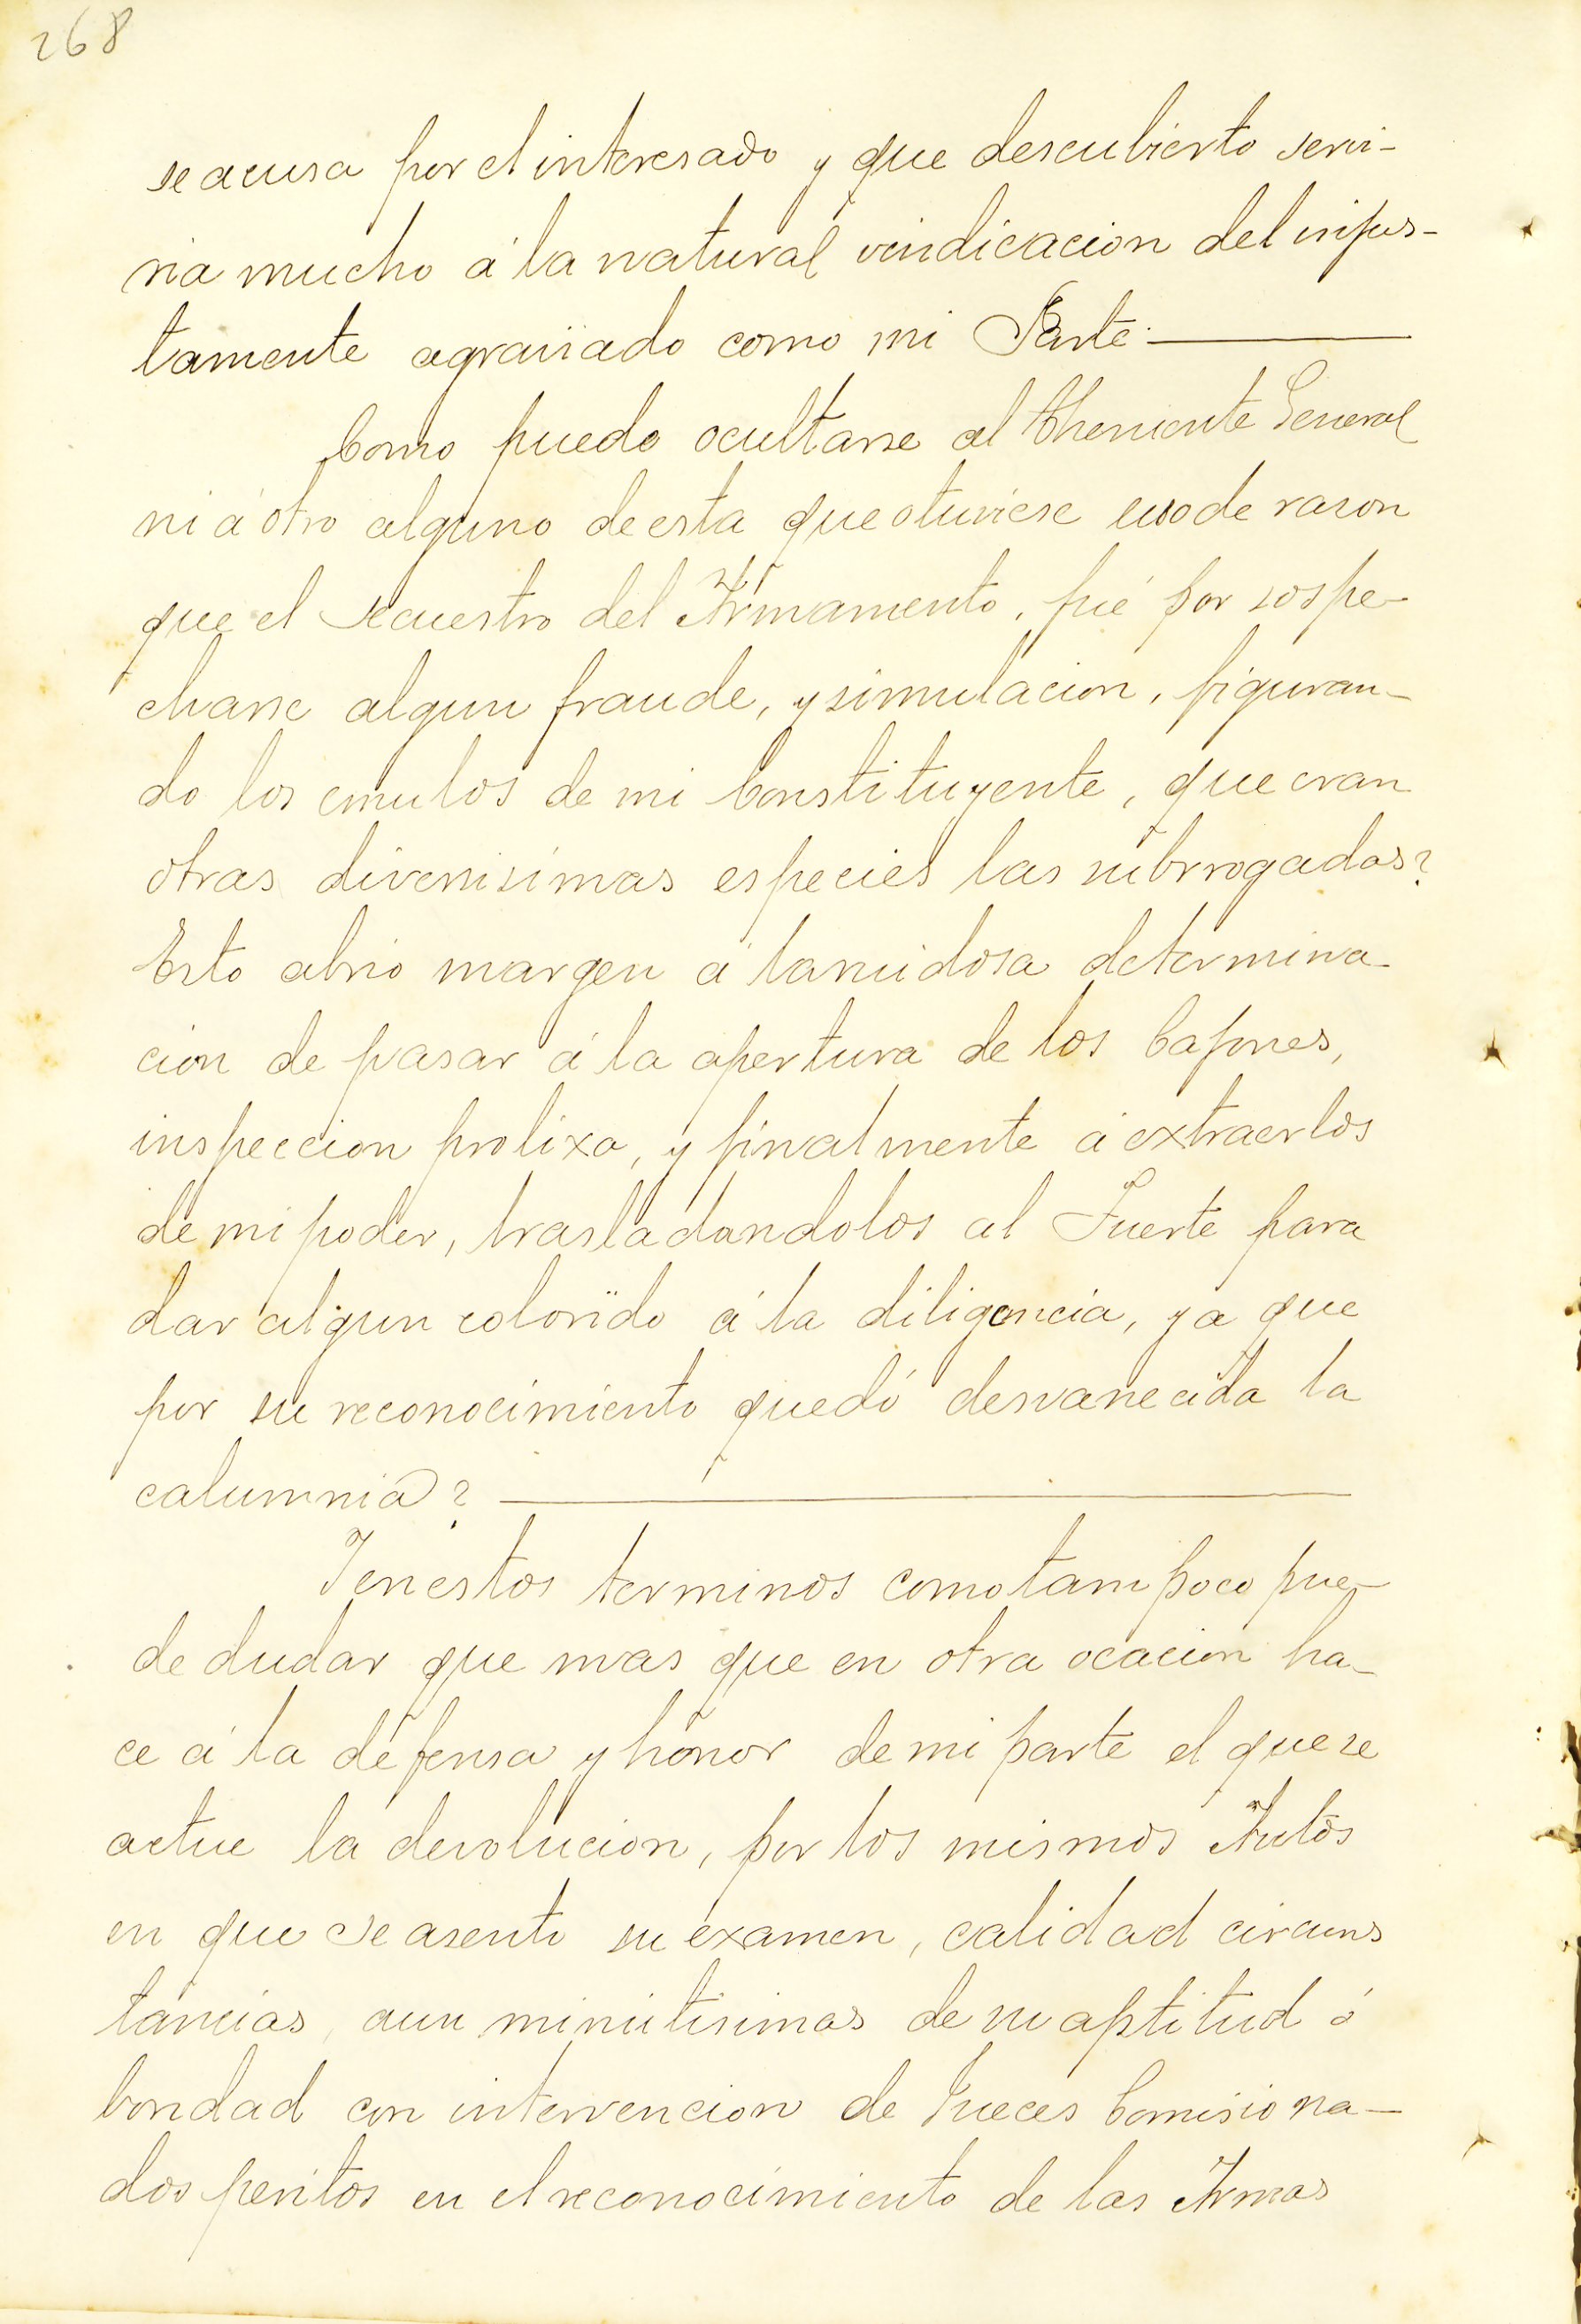 268
se acusa por el interesado y que descubierto servi-
ria mucho á la natural vindicacion del injus-
tamente agraviado como mi Parte.
Como puedo ocultarse al Theniente General
ni á otro alguno de esta que otuviese uso de rason
que el secuestro del Armamento, fué por sospe-
charse algun fraude, y simulacion, figuran-
do los emulos de mi Constituyente, que eran
otras diversisimas especies las subrrogadas?
Esto abrio margen á la ruidosa determina-
cion de pasar á la apertura de los Cajones,
inspeccion prolixa, y finalmente á extraerlos
de mi poder, trasladandolos al Fuerte para
dar algun colorido á la diligencia, ya que
por su reconocimiento quedó desvanecida la
calumnia?
I en estos terminos como tampoco pue-
de dudar que mas que en otra ocacion ha-
ce á la defensa y honor de mi parte el que se
actue la devolucion, por los mismos Autos
en que se asento su examen, calidad circuns
tancias, aun minutisimas de su aptitud ó
bondad con intervencion de Jueces Comisiona-
dos peritos en el reconocimiento de las Armas